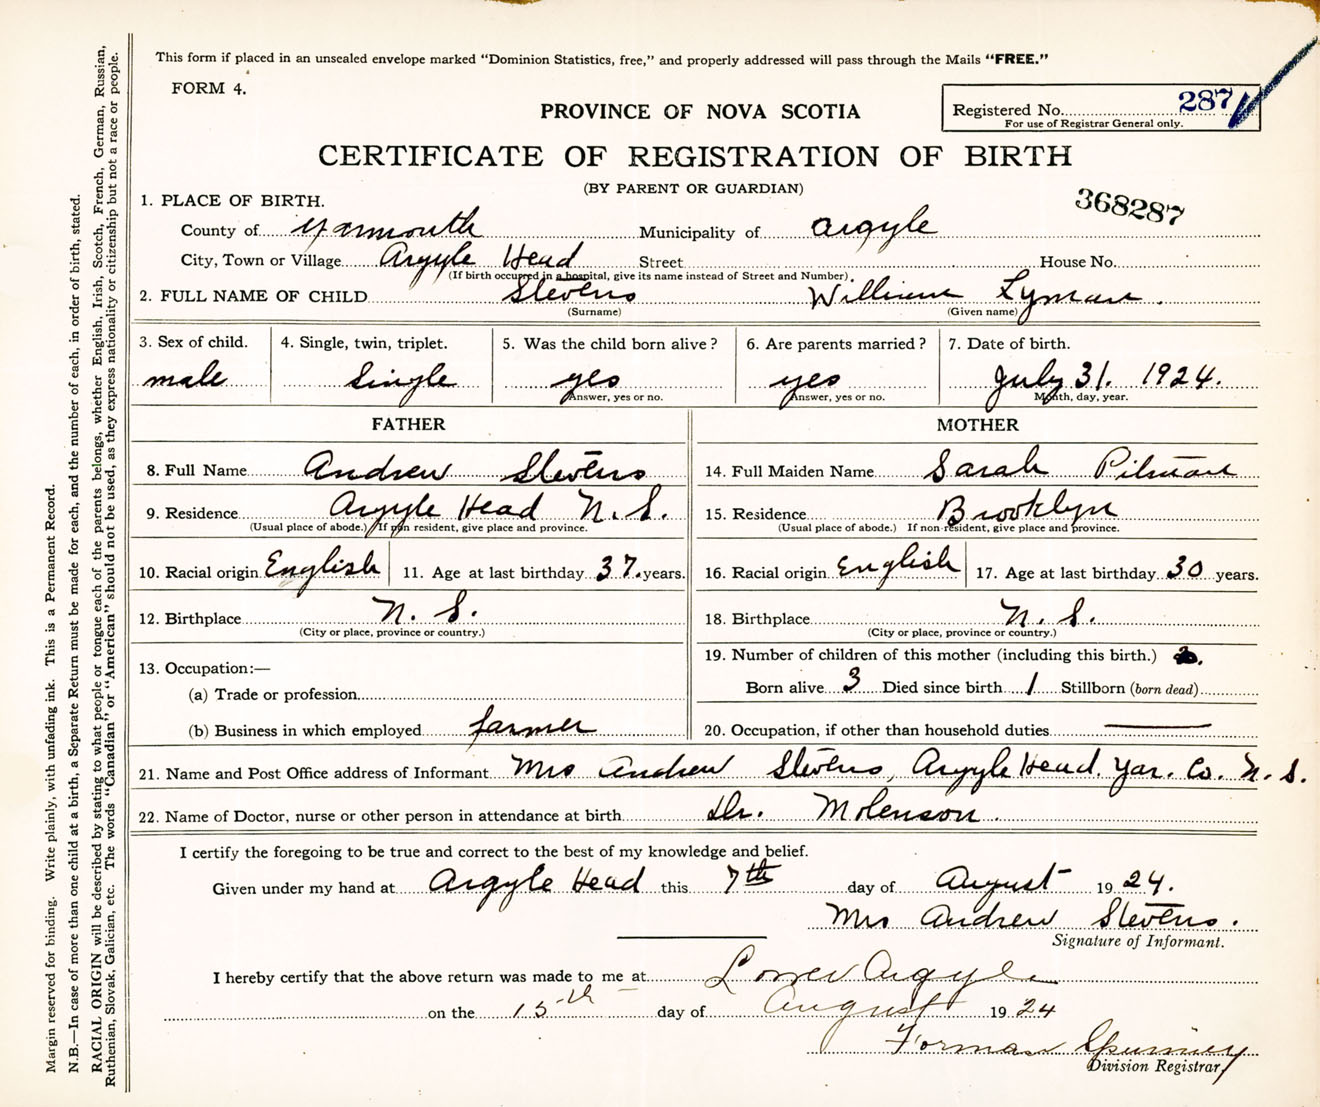 This form if placed in an unsealed envelope marked "Dominion Statistics, free," and properly addressed will pass through the Mails "FREE."
FORM 4.
Registered No. 287
For use of Registrar General only.
PROVINCE OF NOVA SCOTIA
CERTIFICATE OF REGISTRATION OF BIRTH
(BY PARENT OR GUARDIAN)
368287
1. PLACE OF BIRTH.
County of Yarmouth Municipality of Argyle
City, Town or Village Argyle Head Street House No.
(If birth occurred in a hospital, give its name instead of Street and Number)
2. FULL NAME OF CHILD Stevens William Lyman.
(Surname) (Given name)
3. Sex of child. 4. Single, twin, triplet. 5. Was the child born alive? 6. Are parents married? 7. Date of birth.
male Single yes yes July 31. 1924.
Answer, yes or no. Answer, yes or no. Month, day, year.
FATHER MOTHER
8. Full Name Andrew Stevens 14. Full Maiden Name Sarah Pitman
9. Residence Argyle Head N.S. 15. Residence Brooklyn
(Usual place of abode.) If non resident, give place and province. (Usual place of abode.) If non-resident, give place and province.
10. Racial origin English 11. Age at last birthday 37. years. 16. Racial origin English 17. Age at last birthday 30 years.
12. Birthplace N. S. 18. Birthplace N. S.
(City or place, province or country.) (City or place, province or country.)
13. Occupation:— 19. Number of children of this mother (including this birth.)
(a) Trade or profession Born alive 3 Died since birth 1 Stillborn (born dead)
(b) Business in which employed farmer 20. Occupation, if other than household duties
21. Name and Post Office address of Informant Mrs Andrew Stevens, Argyle Head. Yar. Co. N. S.
22. Name of Doctor, nurse or other person in attendance at birth Dr.
I certify the foregoing to be true and correct to the best of my knowledge and belief.
Given under my hand at Argyle Head this 7th day of August 1924.
Mrs Andrew Stevens.
Signature of Informant.
I hereby certify that the above return was made to me at Lower Argyle
on the 15th day of August 1924
Forman Spinney
Division Registrar
Margin reserved for binding. Write plainly, with unfading ink. This is a Permanent Record.
N.B.—In case of more than one child at a birth, a Separate Return must be made for each, and the number of each, in order of birth, stated.
RACIAL ORIGIN will be described by stating to what people or tongue each of the parents belongs, whether English, Irish, Scotch, French, German, Russian,
Ruthenian, Slovak, Galician, etc. The words "Canadian" or "American" should not be used, as they express nationality or citizenship but not a race or people.